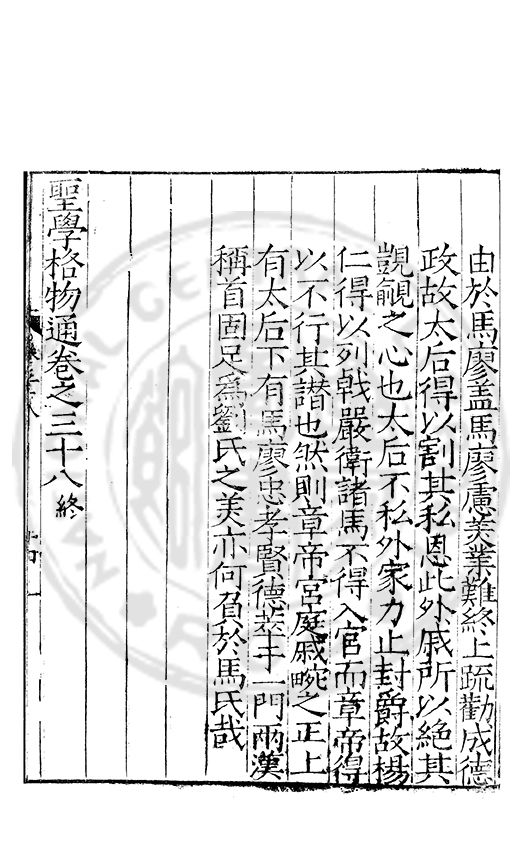 由於馬廖蓋馬廖慮美業難終上疏勸成德
政故太后得以割其私恩此外戚所以絕其
覬覦之心也太后不私外家力止封爵故楊
仁得以列戟嚴衛諸馬不得入宮而章帝得
以不行其譖也然則章帝宮庭戚畹之正上
有太后下有馬廖忠孝賢德萃于一門兩漢
稱首固足爲劉氏之美亦何負於馬氏哉
聖學格物通卷之三十八終